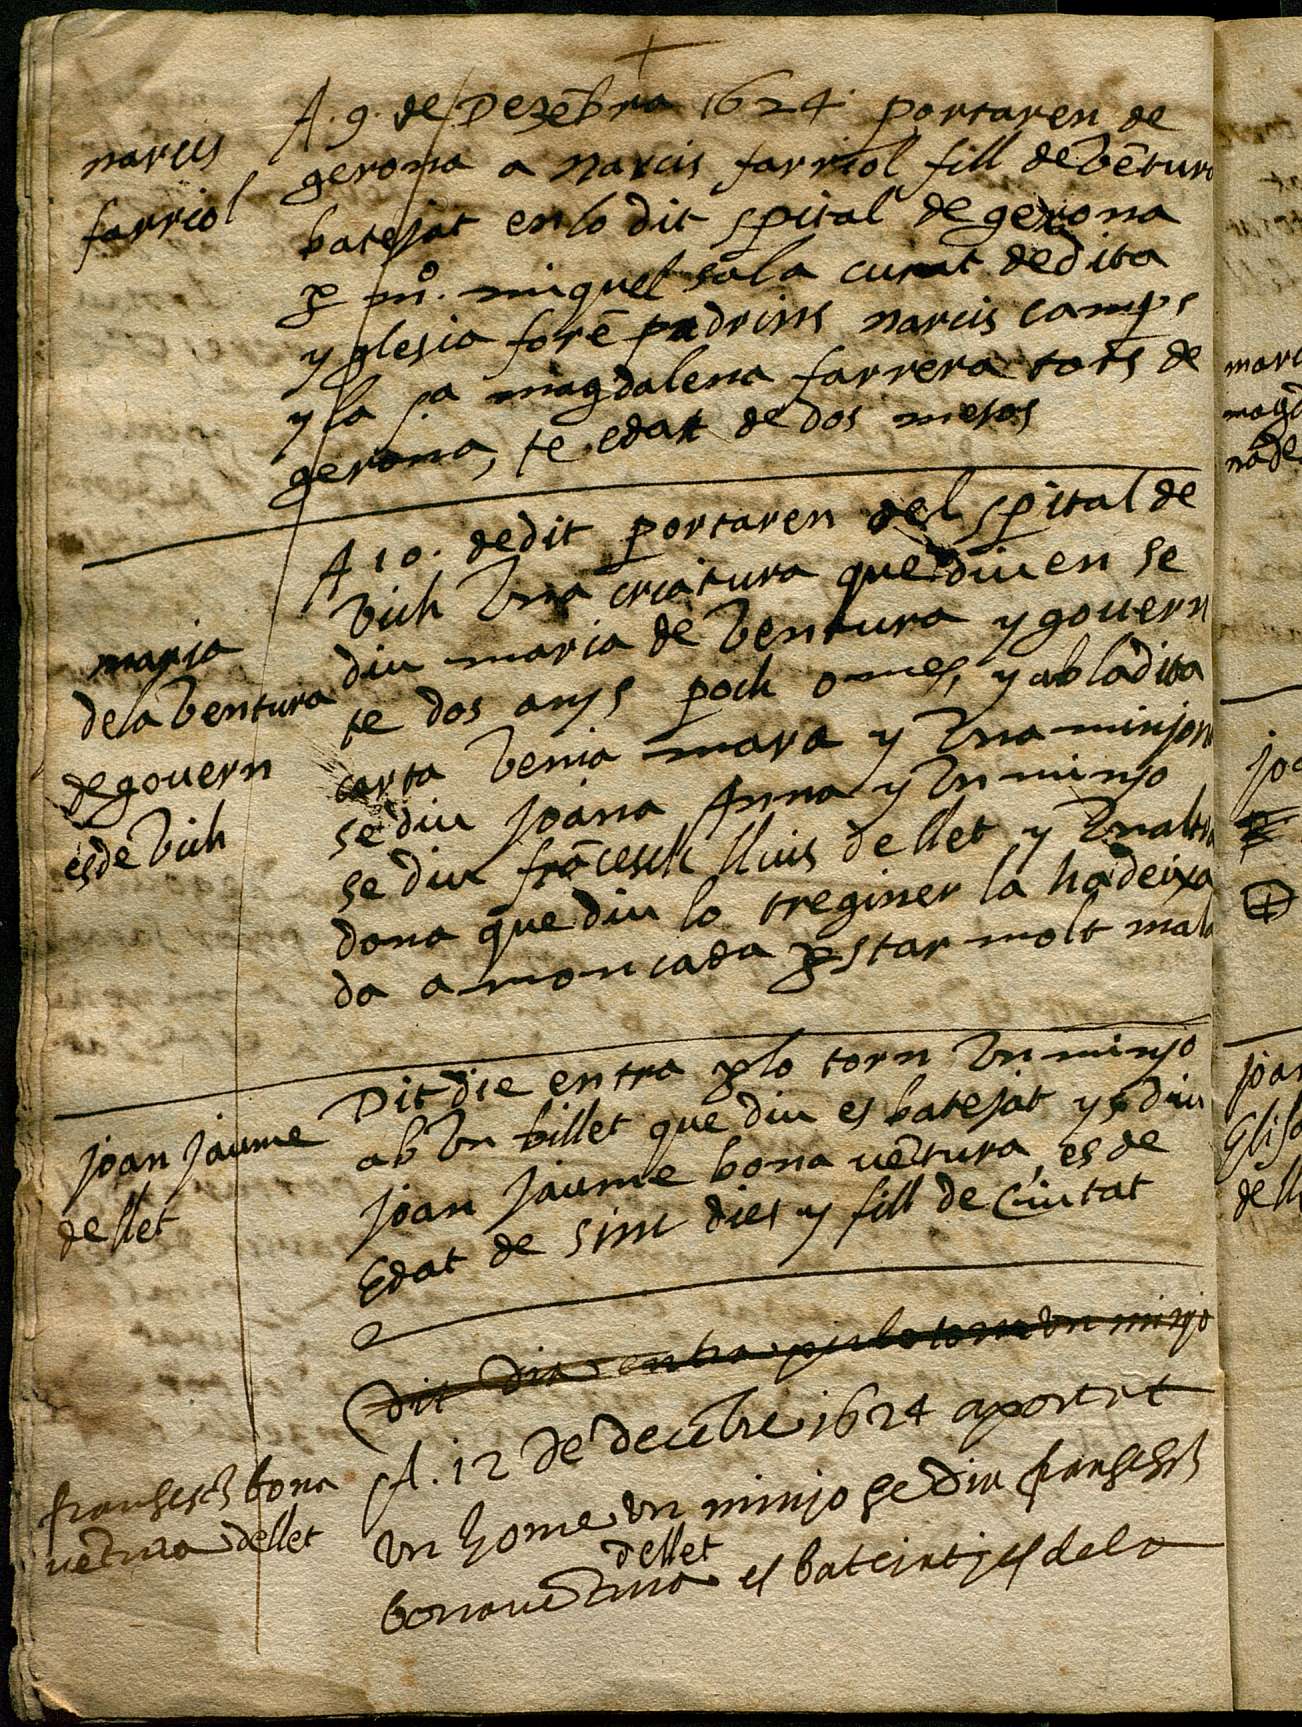 narcis
farriol
A. 9. de Dezẽbra 1624. portaren de
gerona a narcis farriol fill de vẽtura
batejat en lo dit spital de gerona
ꝑ mº. miquel sala curat de dita
yglesia forẽ padrins narcis camps
y la sa magdalena farrera tots de
gerona, te edat de dos mesos
maria
de la ventura
de govern
es de vich
A 10. de dit portaren del spital de
vich vna criatura que diuen se
diu maria de ventura y gouern
te dos anys poch o mes, y ab la dita
carta venia mara y vna minjona
se diu joana Anna y vn minjo
se diu frãcesch lluis de llet y vnaltra
dona que diu lo treginer la ha deixa
da a moncada ꝑ star molt mala
joan jaume
de llet
Dit die entra ꝑ lo torn vn minjo
ab vn billet que diu es batejat y s diu
joan jaume bona vẽtura, es de
Edat de sinc dies y fill de Ciutat
dit dia entra per lo torn vn minjo
fransesch bona
vẽtura de llet
A. 12 de decẽbre 1624 aportat
vn home vn minjo se diu fransesch
de llet
bonavẽtura es bateiat y es de la
marc
magd
na de
joa
joan
Elisa
de ll